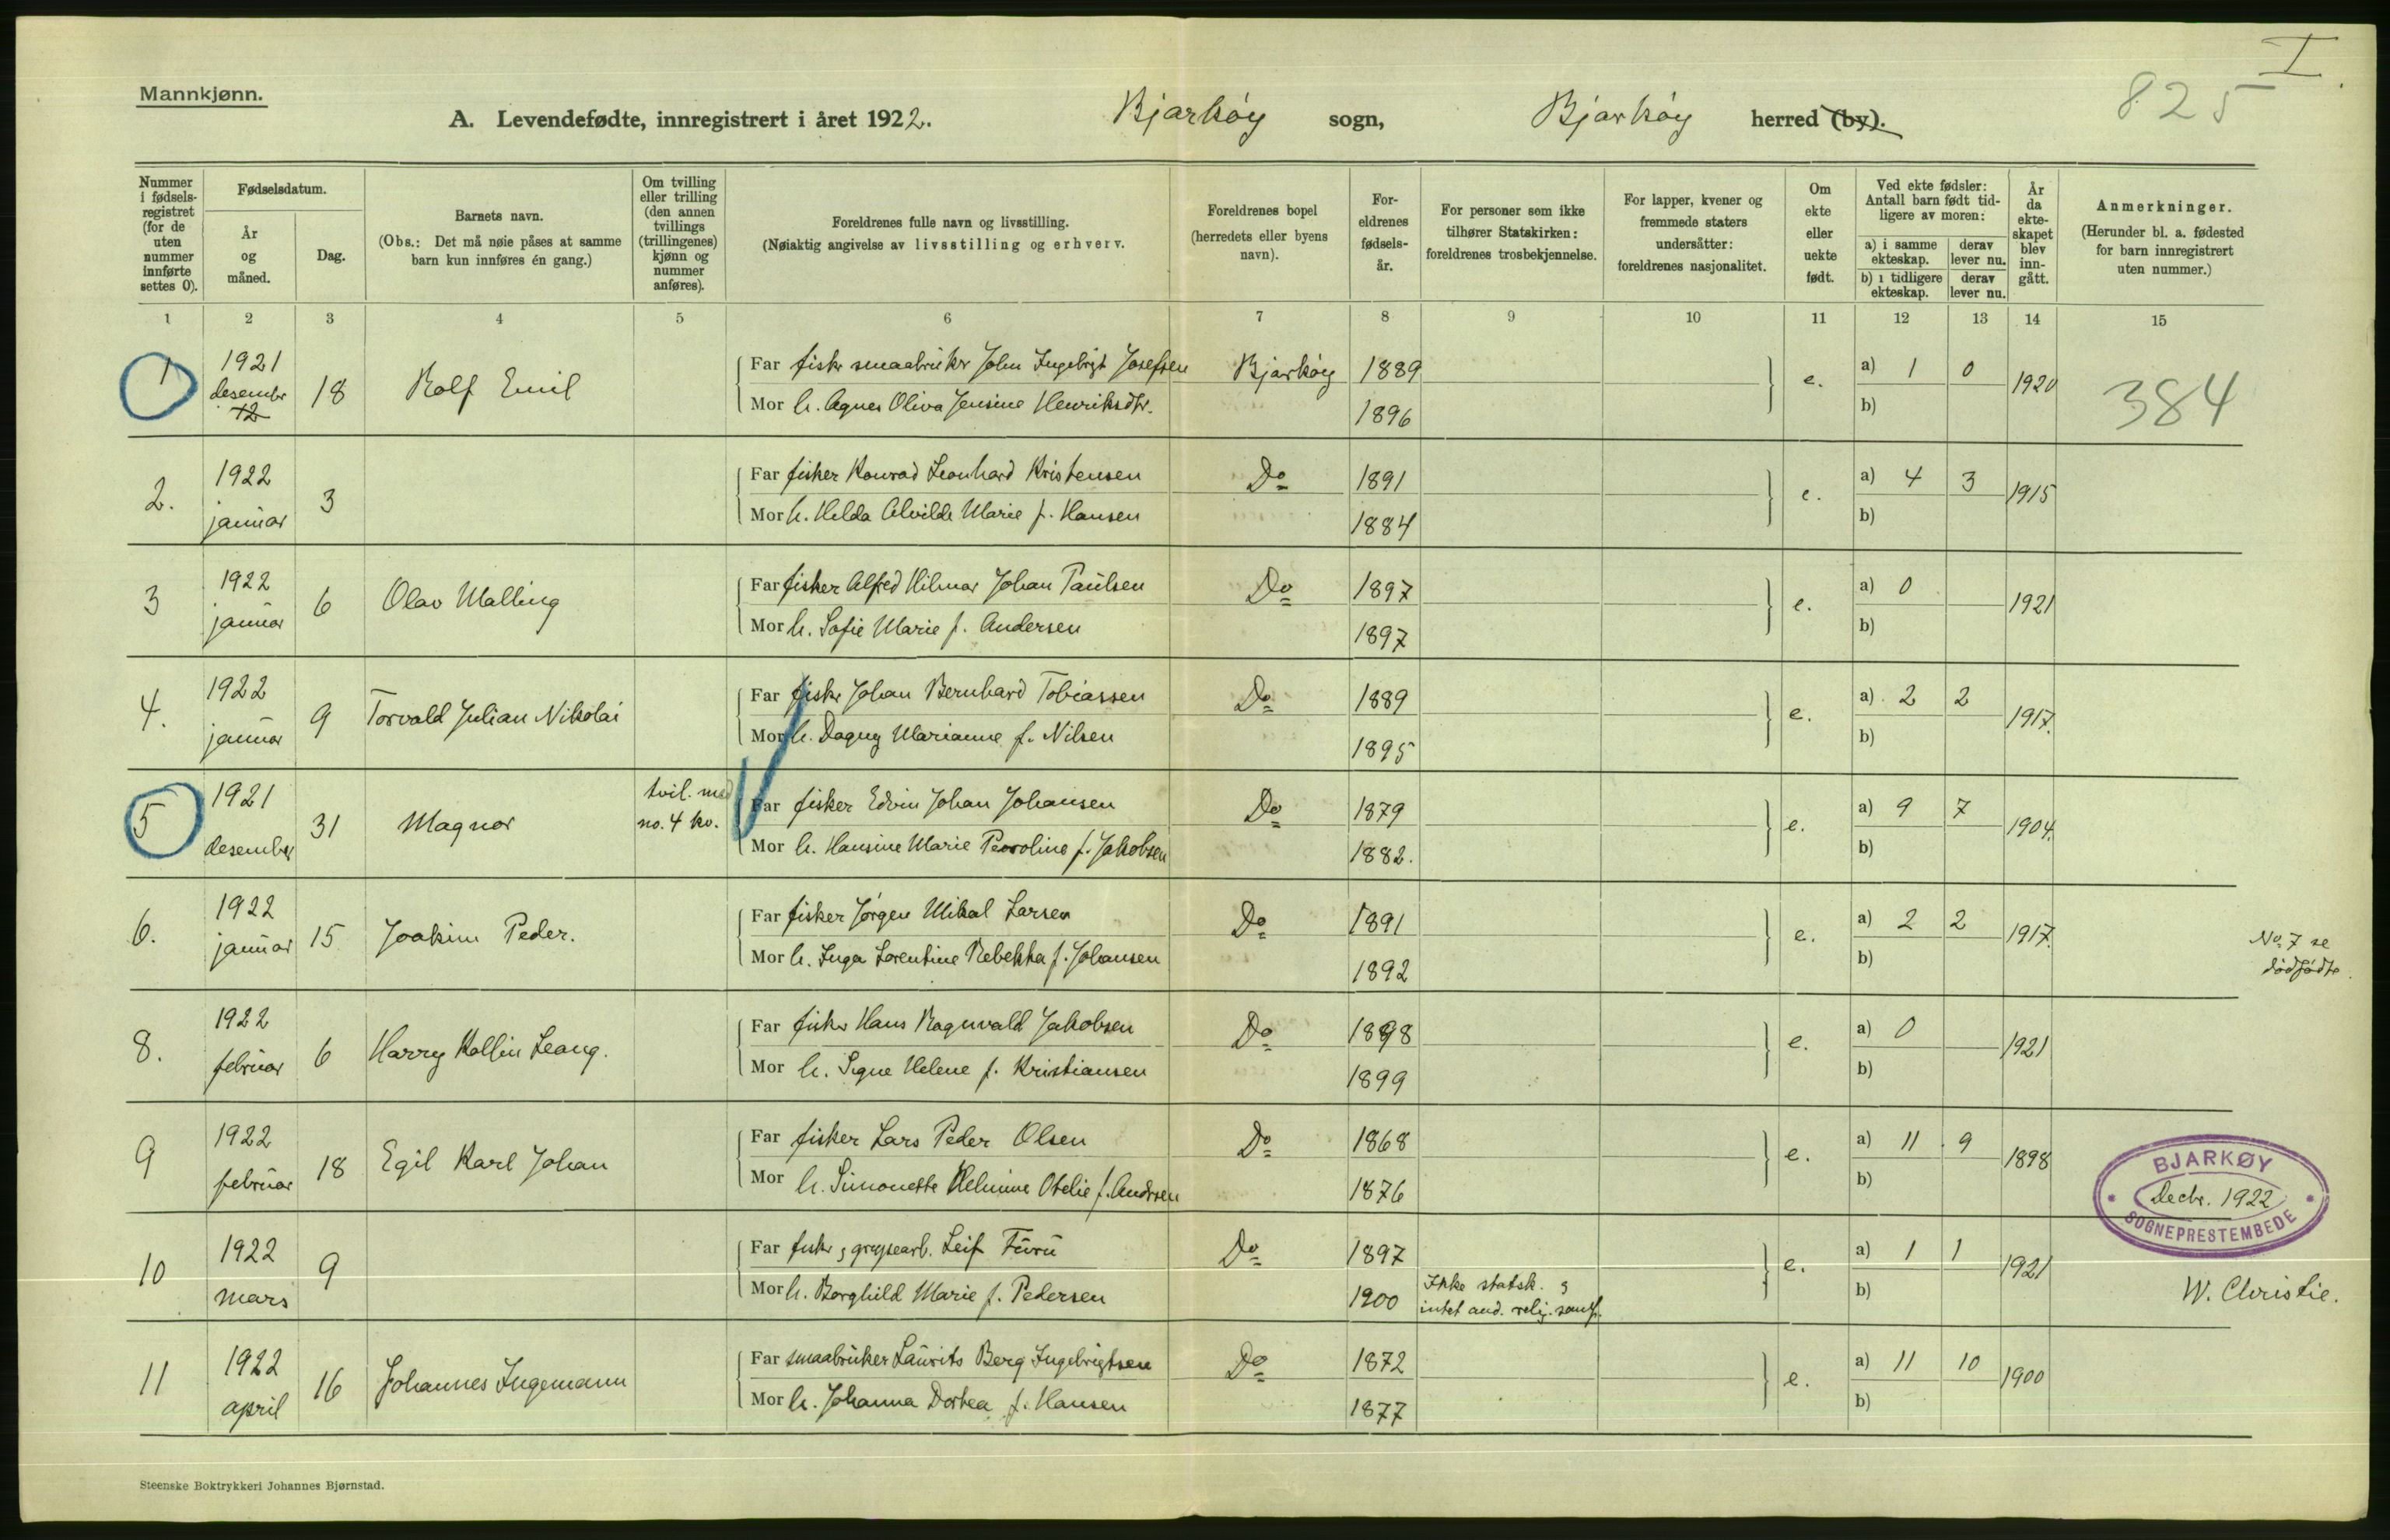 I
825
Mannkjønn.
A. Levendefødte, innregistrert i året 1922. Bjarkøy sogn, Bjarkøy herred (by).
Nummer i fødsels-registret (for de uten nummer innførte settes 0).
Fødselsdatum.
År og måned.
Dag.
Barnets navn.
(Obs.: Det må nøie påses at samme barn kun innføres én gang.)
Om tvilling eller trilling (den annen tvillings (trillingenes) kjønn og nummer anføres).
Foreldrenes fulle navn og livsstilling.
(Nøiaktig angivelse av livsstilling og erhverv.
Foreldrenes bopel (herredets eller byens navn).
For-eldrenes fødsels-år.
For personer som ikke tilhører Statskirken: foreldrenes trosbekjennelse.
For lapper, kvener og fremmede staters undersåtter: foreldrenes nasjonalitet.
Om ekte eller uekte født.
Ved ekte fødsler: Antall barn født tid-ligere av moren:
a) i samme ekteskap. derav lever nu.
b) i tidligere ekteskap. derav lever nu.
År da ekte-skapet blev inn-gått.
Anmerkninger.
(Herunder bl. a. fødested for barn innregistrert uten nummer.)
1 2 3 4 5 6 7 8 9 10 11 12 13 14 15
1 1921 desembr 12 18 Rolf Emil
Far fisker smaabruker John Ingebrigt Josefsen Bjarkøy 1889 e. a) 1 0 1920 384
Mor h. Agnes Oliva Jensine Henriksdtr. 1896 b)
2. 1922 januar 3
Far fisker Konrad Leonhard Kristensen Do 1891 e. a) 4 3 1915
Mor h. Helda Alvilde Marie f. Hansen 1884 b)
3 1922 januar 6 Olav Malling
Far fisker Alfred Hilmar Johan Paulsen Do 1897 e. a) 0 1921
Mor h. Sofie Marie f. Andersen 1897 b)
4. 1922 januar 9 Torvald Julian Nikolai
Far fisker Johan Bernhard Tobiassen Do 1889 e. a) 2 2 1917.
Mor h. Dagny Marianne f. Nilsen 1895 b)
5 1921 desember 31 Magnor tvil. med no. 4 kv.
Far fisker Edvin Johan Johansen Do 1879 e. a) 9 7 1904.
Mor h. Hansine Marie Peroline f. Jakobsen 1882. b)
6. 1922 januar 15 Joakim Peder.
Far fisker Jørgen Mikal Larsen Do 1891 e. a) 2 2 1917.
Mor h. Inga Lorentine Rebekka f. Johansen 1892 b)
No 7 se
dødfødte.
8. 1922 februar 6 Harry Kollin Leang.
Far fisker Hans Ragnvald Jakobsen Do 1898 e. a) 0 1921
Mor h. Signe Helene f. Kristiansen 1899 b)
9 1922 februar 18 Egil Karl Johan
Far fisker Lars Peder Olsen Do 1868 e. a) 11 9 1898
Mor h. Simonette Helmine Otelie f. Andrsen 1876 b)
BJARKØY
Decbr. 1922
SOGNEPRESTEMBEDE
10 1922 mars 9
Far fisker Leif Furu Do 1897 e. a) 1 1 1921
Mor h. Borghild Marie f. Pedersen 1900 Ikke statsk. og intet and. relig. samf. b)
W. Christie.
11 1922 april 16 Johannes Ingemann
Far smaabruker Laurits Berg Ingebrigtsen Do 1872 e. a) 11 10 1900
Mor h. Johanna Dortea f. Hansen 1877 b)
Steenske Boktrykkeri Johannes Bjørnstad.